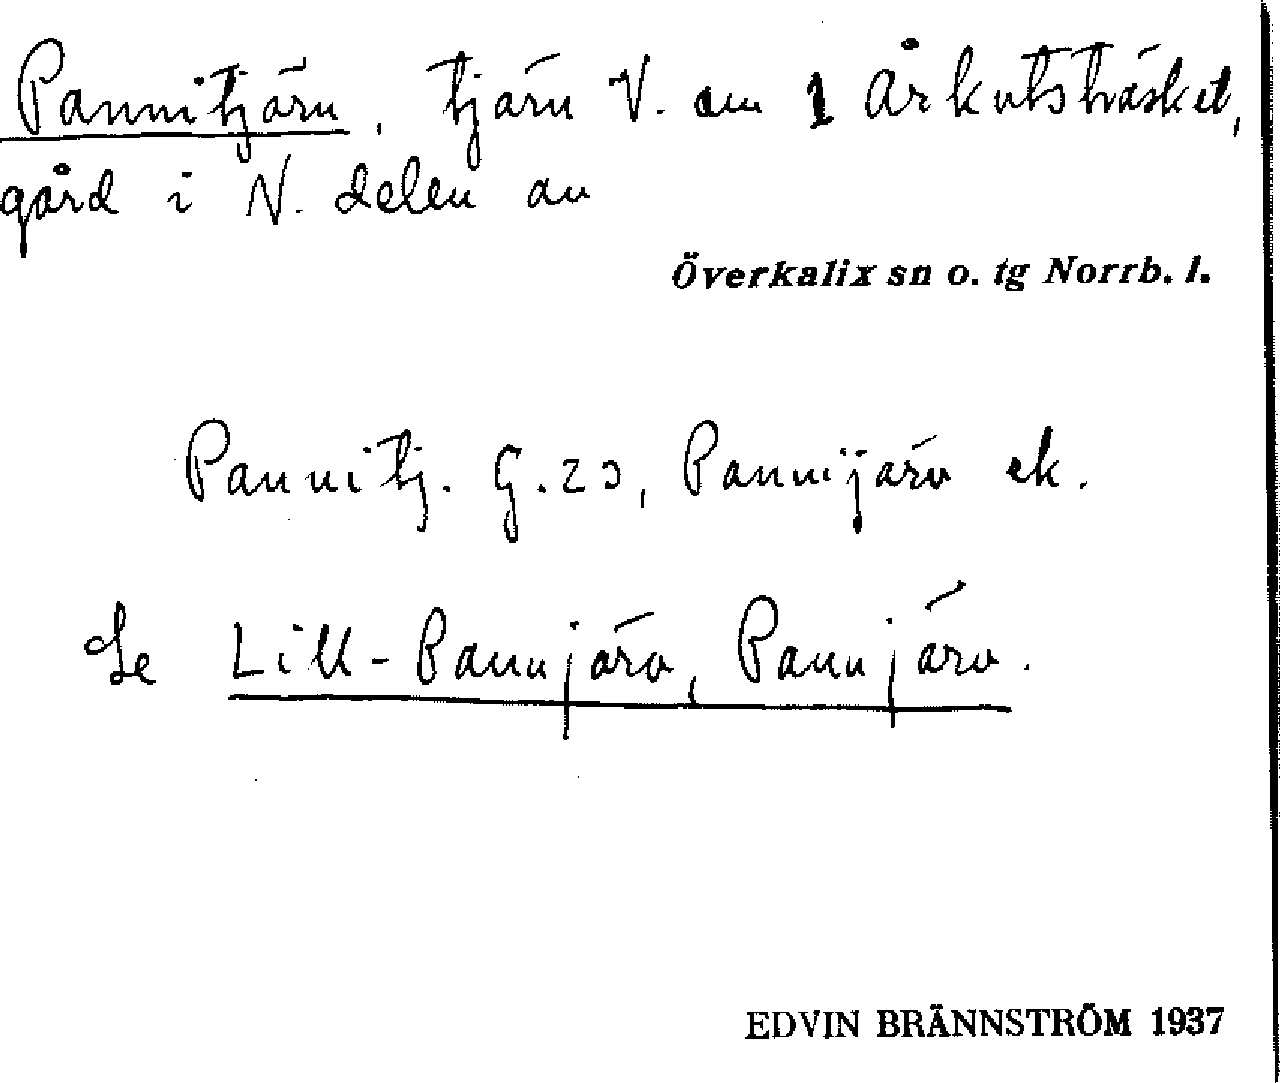 Pannitjärn, tjärn V. om 1 Årkutsträsket,
gård i N. delen av
Överkalix sn o. tg Norrb. l.
Pannitj. G.23, Pannijärv ek.
Se Lill-Pannjärv, Pannjärv.
EDVIN BRÄNNSTRÖM 1937